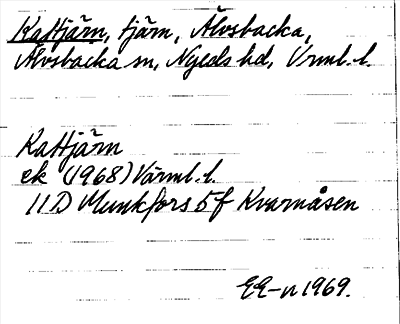 Kattjärn, tjärn, Älvsbacka,
Älvsbacka sn, Nyeds hd, Vrml. l.
Kattjärn
ek (1968) Värml. l.
11D Munkfors 5f Kvarnåsen
EE-n 1969.